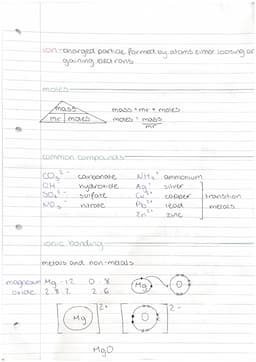 ion - charged particle formed by atoms either loosing or
gaining electrons
moles
mass
mr moles
mass = mr × moles
moles = mass
mr
common compounds
CO₃²⁻ carbonate NH₄⁺ ammonium
OH⁻ hydroxide Ag⁺ silver
SO₄²⁻ sulfate Cu²⁺ copper transition
NO₃⁻ nitrate Pb²⁺ lead metals
Zn²⁺ zinc
ionic bonding
metals and non-metals
magnesium Mg - 12 O - 8
oxide 2.8.2 2.6
Mg O
Mg 2+ O 2-
MgO